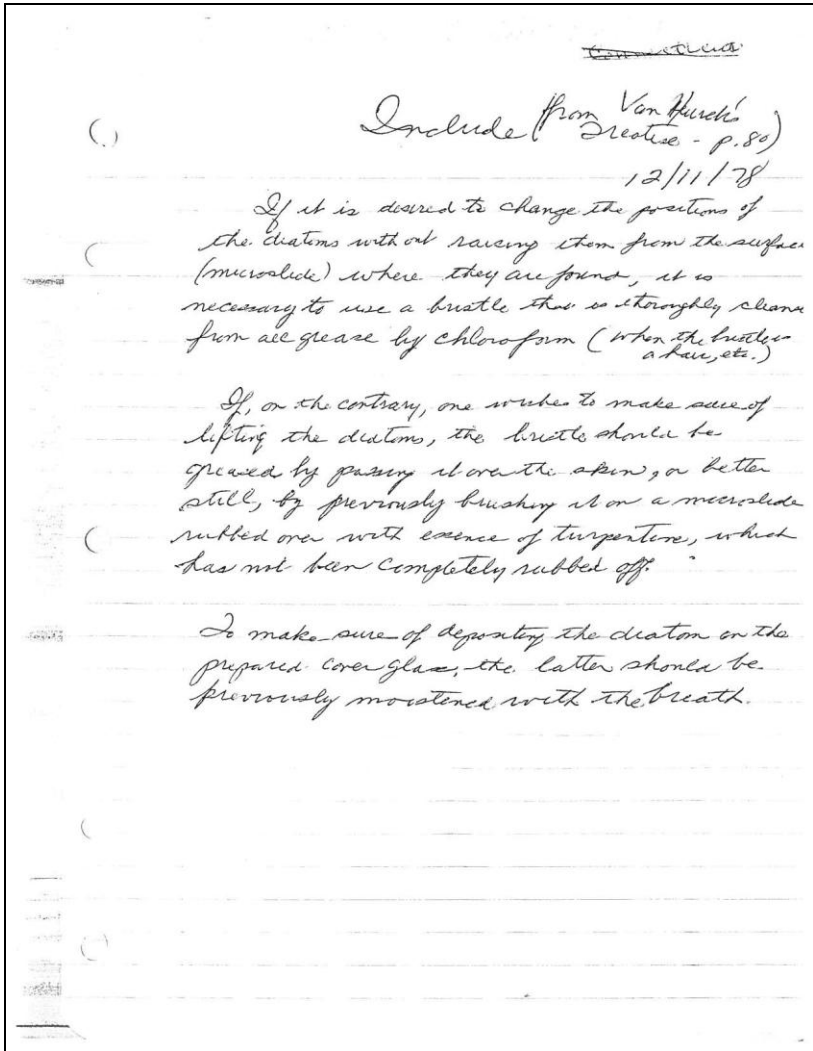 Include (from Van Heurck's
Treatise - p. 80)
12/11/78
If it is desired to change the positions of
the diatoms without raising them from the surface
(microslide) where they are found, it is
necessary to use a bristle that is thoroughly cleane
from all grease by chloroform (when the bristle is
a hair, etc.)
If, on the contrary, one wishes to make sure of
lifting the diatoms, the bristle should be
greased by passing it over the skin, or better
still, by previously brushing it on a microslide
rubbed over with essence of turpentine, which
has not been completely rubbed off.
To make sure of depositing the diatom on the
prepared cover glass, the latter should be
previously moistened with the breath.